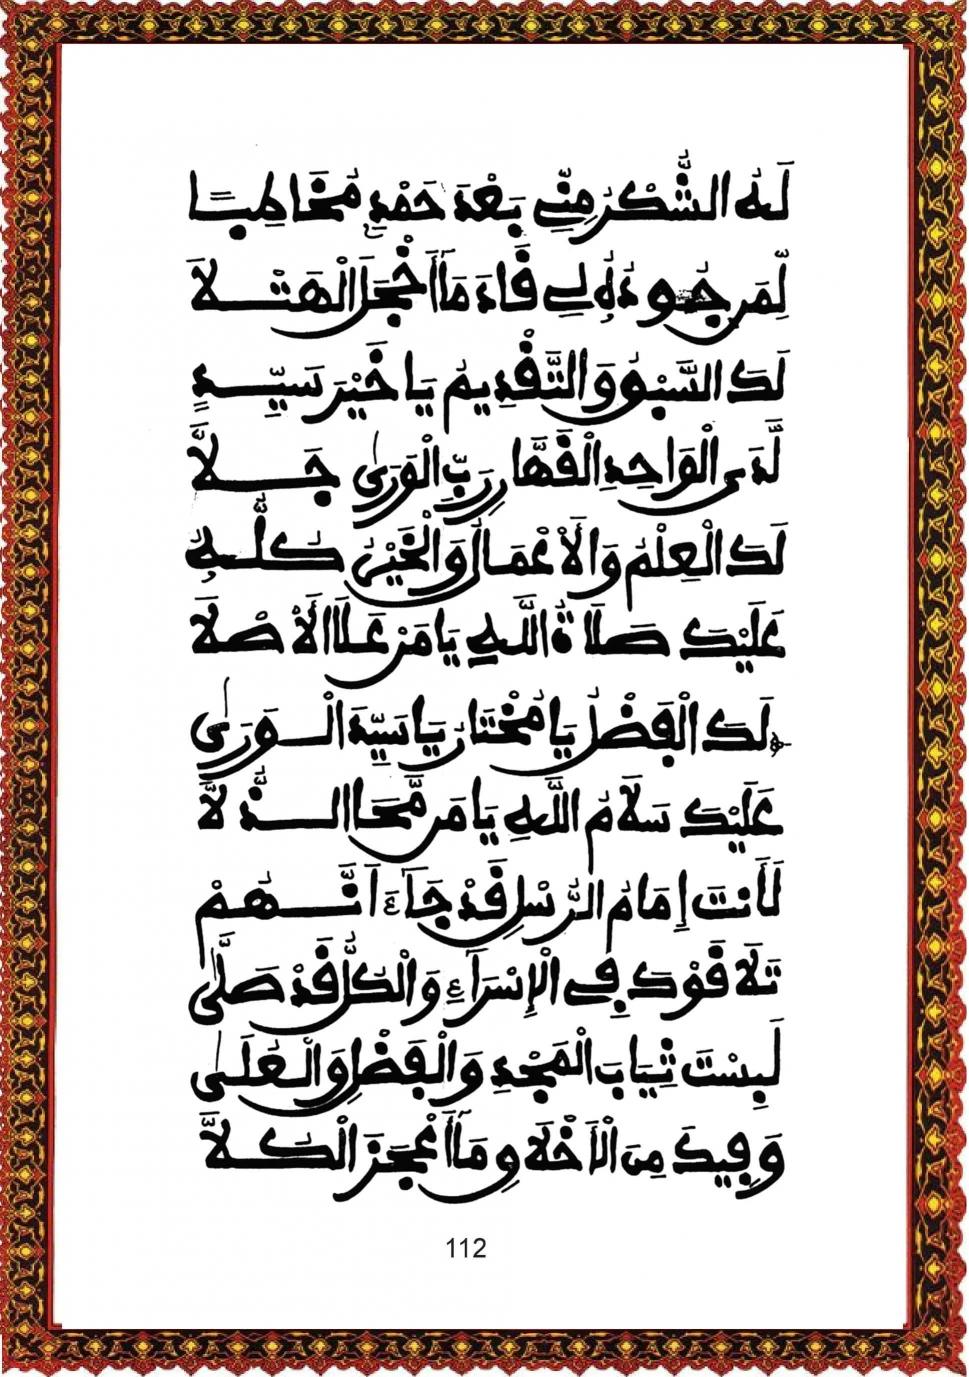 لَهُ الشُّكْرُ مِنِّي بَعْدَ حَمْدٍ مُخَاطِبًا
لِّمَن جُودُهُ لِي قَادَ مَا أَخْجَلَ الْهَتْلَا
لَكَ السَّبْقُ وَالتَّقْدِيمُ يَا خَيْرَ سَيِّدٍ
لَّدَى الْوَاحِدِ الْقَهَّارِ رَبِّ الْوَرَى جَلَّا
لَكَ الْعِلْمُ وَالْأَعْمَالُ وَالْخَيْرُ كُلُّهُ
عَلَيْكَ صَلَاةُ اللَّهِ يَا مَنْ عَلَا الْأَصْلَا
لَكَ الْفَضْلُ يَا مُخْتَارُ يَا سَيِّدَ الْوَرَى
عَلَيْكَ سَلَامُ اللَّهِ يَا مَن مَّحَا الذُّلَّا
لَأَنتَ إِمَامُ الرُّسْلِ قَدْ جَاءَ أَنَّهُمْ
تَلَا قَوْدَكَ فِي الْإِسْرَاءِ وَالْكُلُّ قَدْ صَلَّى
لَبِسْتَ ثِيَابَ الْمَجْدِ وَالْفَضْلِ وَالْعُلَى
وَفِيكَ مِنَ الْأَخْلَاقِ مَا أَعْجَزَ الْكُلَّا
112